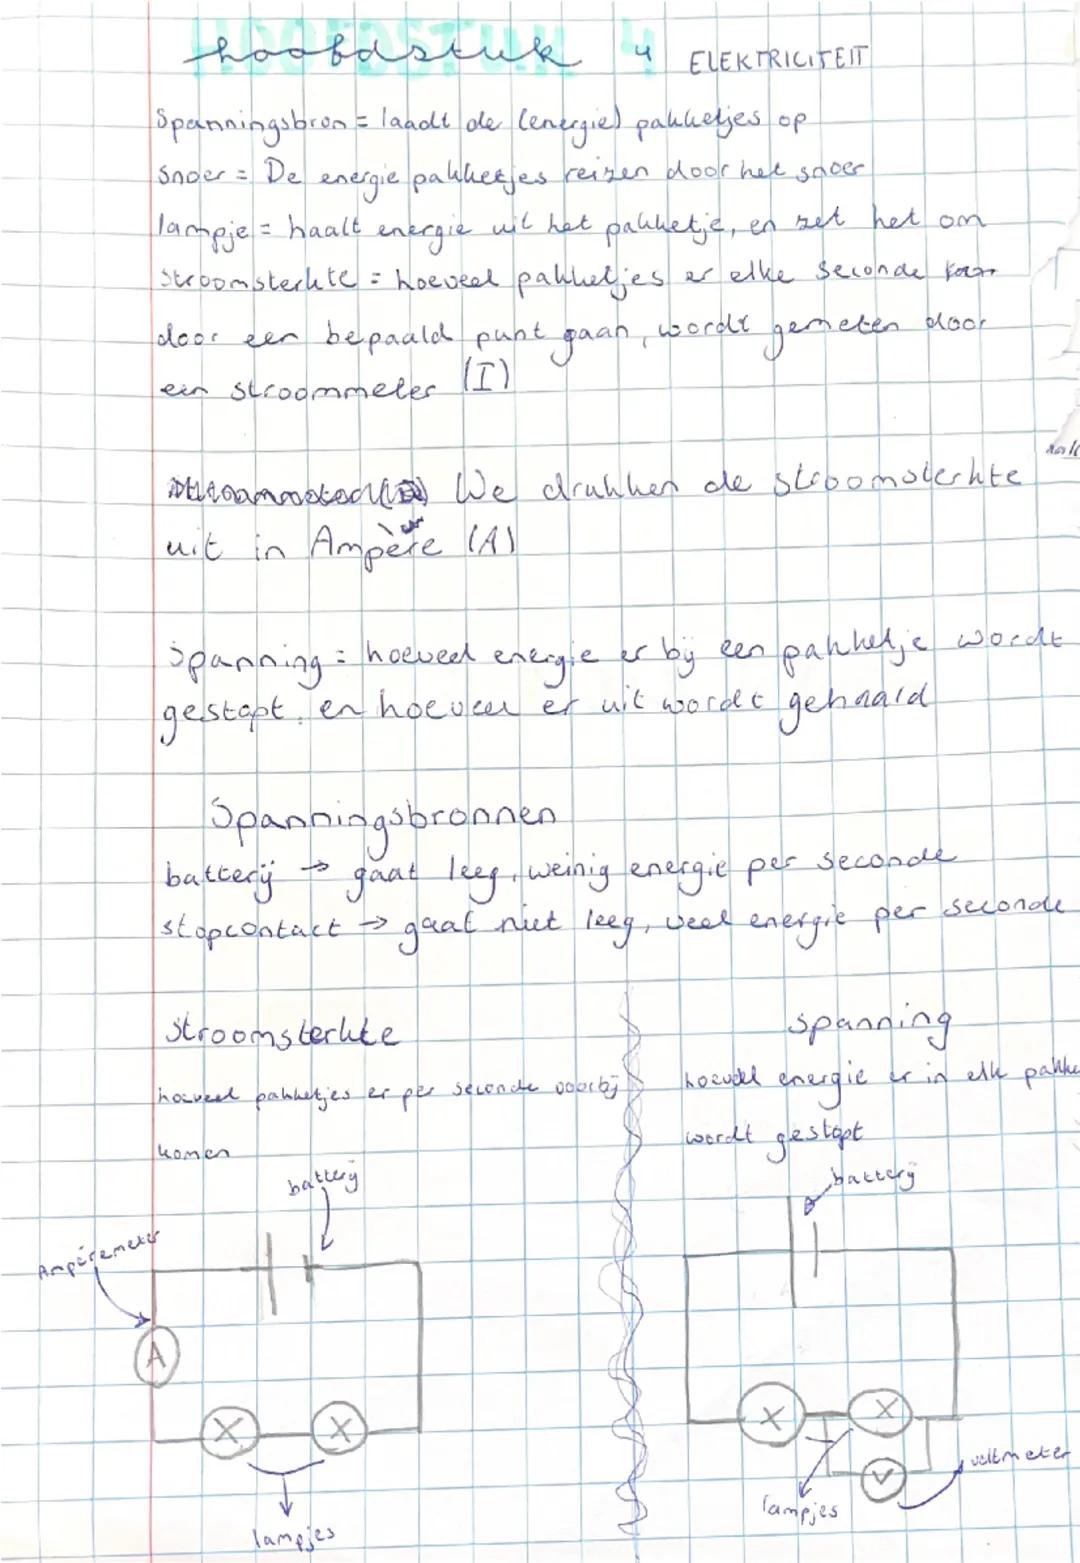 hoofdstuk 4 ELEKTRICITEIT
Spanningsbron = laadt de (energie) pakketjes op
Snoer = De energie pakketjes reizen door het snoer
lampje = haalt energie uit het pakketje, en zet het om
Stroomsterkte = hoeveel pakketjes er elke seconde
door een bepaald punt gaan, wordt gemeten door
een stroommeter (I)
We drukken de stroomsterkte
uit in Ampère (A)
Spanning = hoeveel energie er bij een pakketje wordt
gestopt, en hoeveel er uit wordt gehaald
Spanningsbronnen
batterij → gaat leeg, weinig energie per seconde
stopcontact → gaat niet leeg, veel energie per seconde
stroomsterkte
hoeveel pakketjes er per seconde voorbij
komen
batterij
Ampèremeter
A
lampjes
spanning
hoeveel energie er in elk pakke
wordt gestopt
batterij
V
voltmeter
lampjes